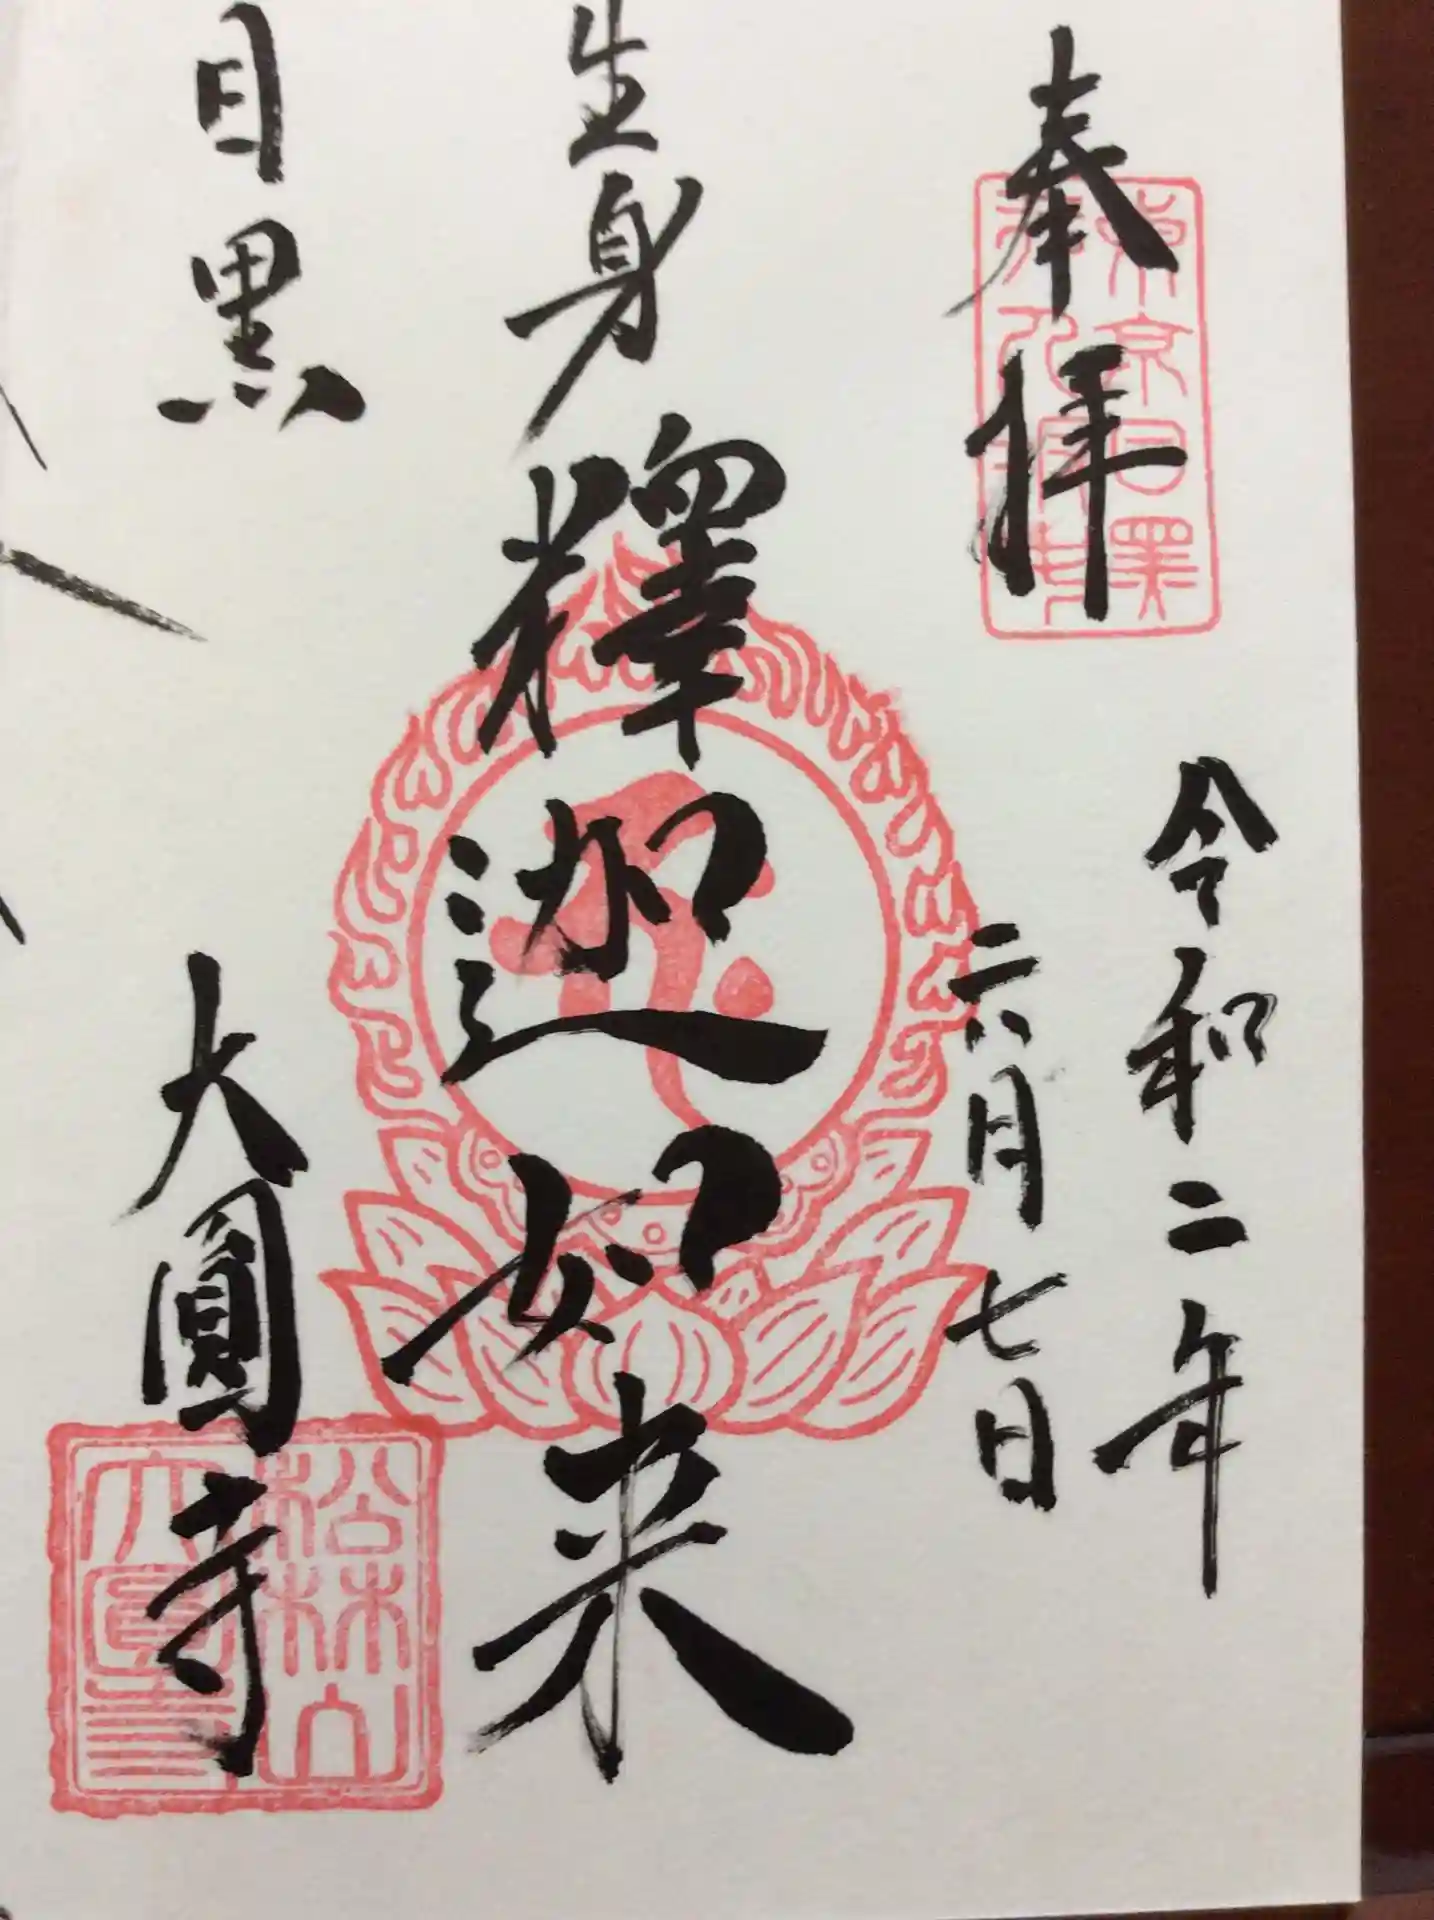 奉拝
東京目黒
令和二年
六月七日
生身
釋迦如来
目黒
大圓寺
松林山
大圓寺